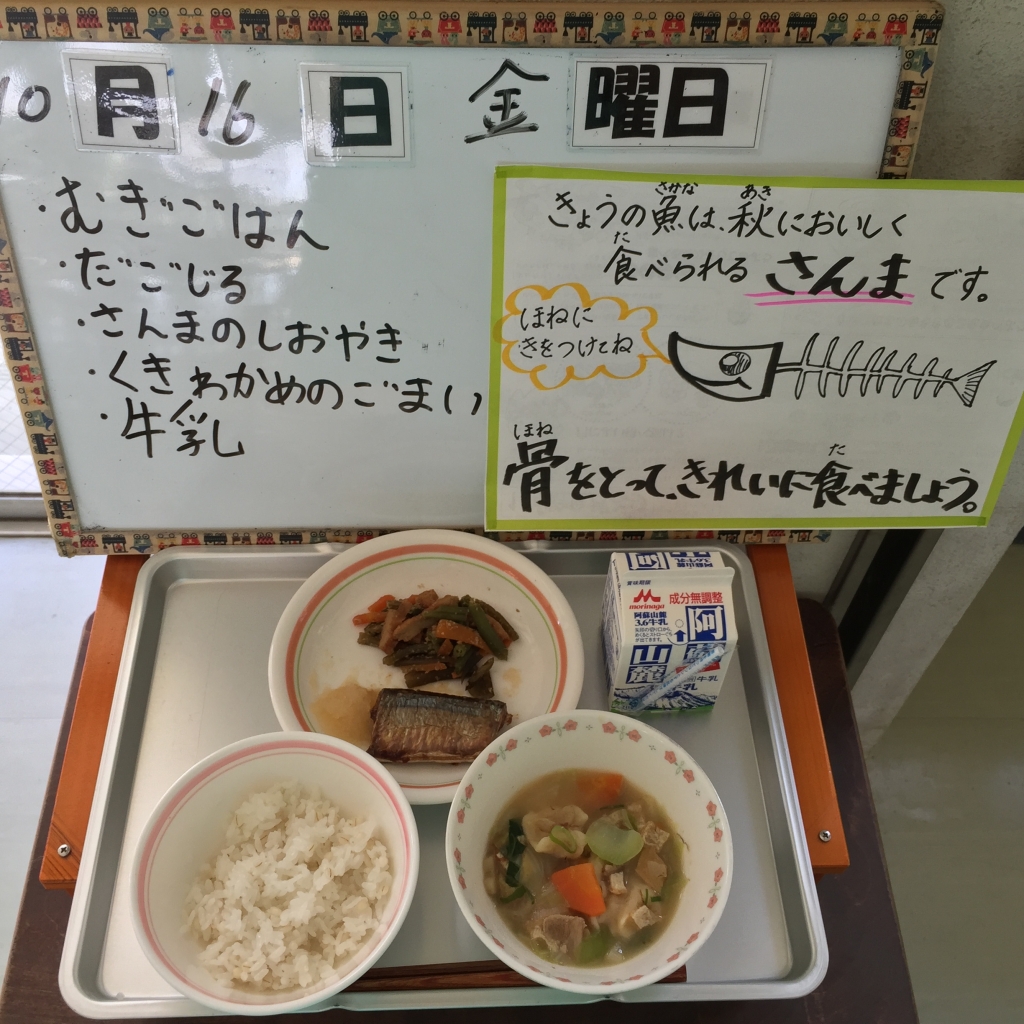 10月16日 金曜日
・むぎごはん
・だごじる
・さんまのしおやき
・くきわかめのごまい
・牛乳
きょうの魚は、秋においしく
さかな あき
食べられる さんま です。
た
ほねに
きをつけてね
骨をとって、きれいに食べましょう。
ほね た
morinaga
成分無調整
阿蘇山麓
3.6牛乳
阿
山麓
牛乳